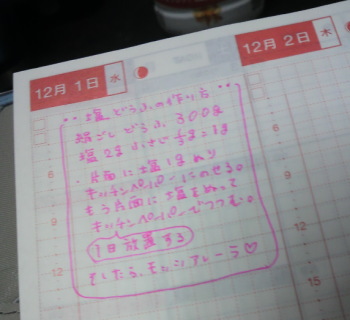 12月 1日 水
12月 2日 木
塩どうふの作り方
絹ごしどうふ 300g
塩 2g 小さじ 1/3=2g
・片面に塩 1g ぬり
キッチンペーパーにのせる。
もう片面に塩をぬって
キッチンペーパーでつつむ。
1日放置する
そしたら、モッツァレーラ♡
6
9
12
6
9
12
15